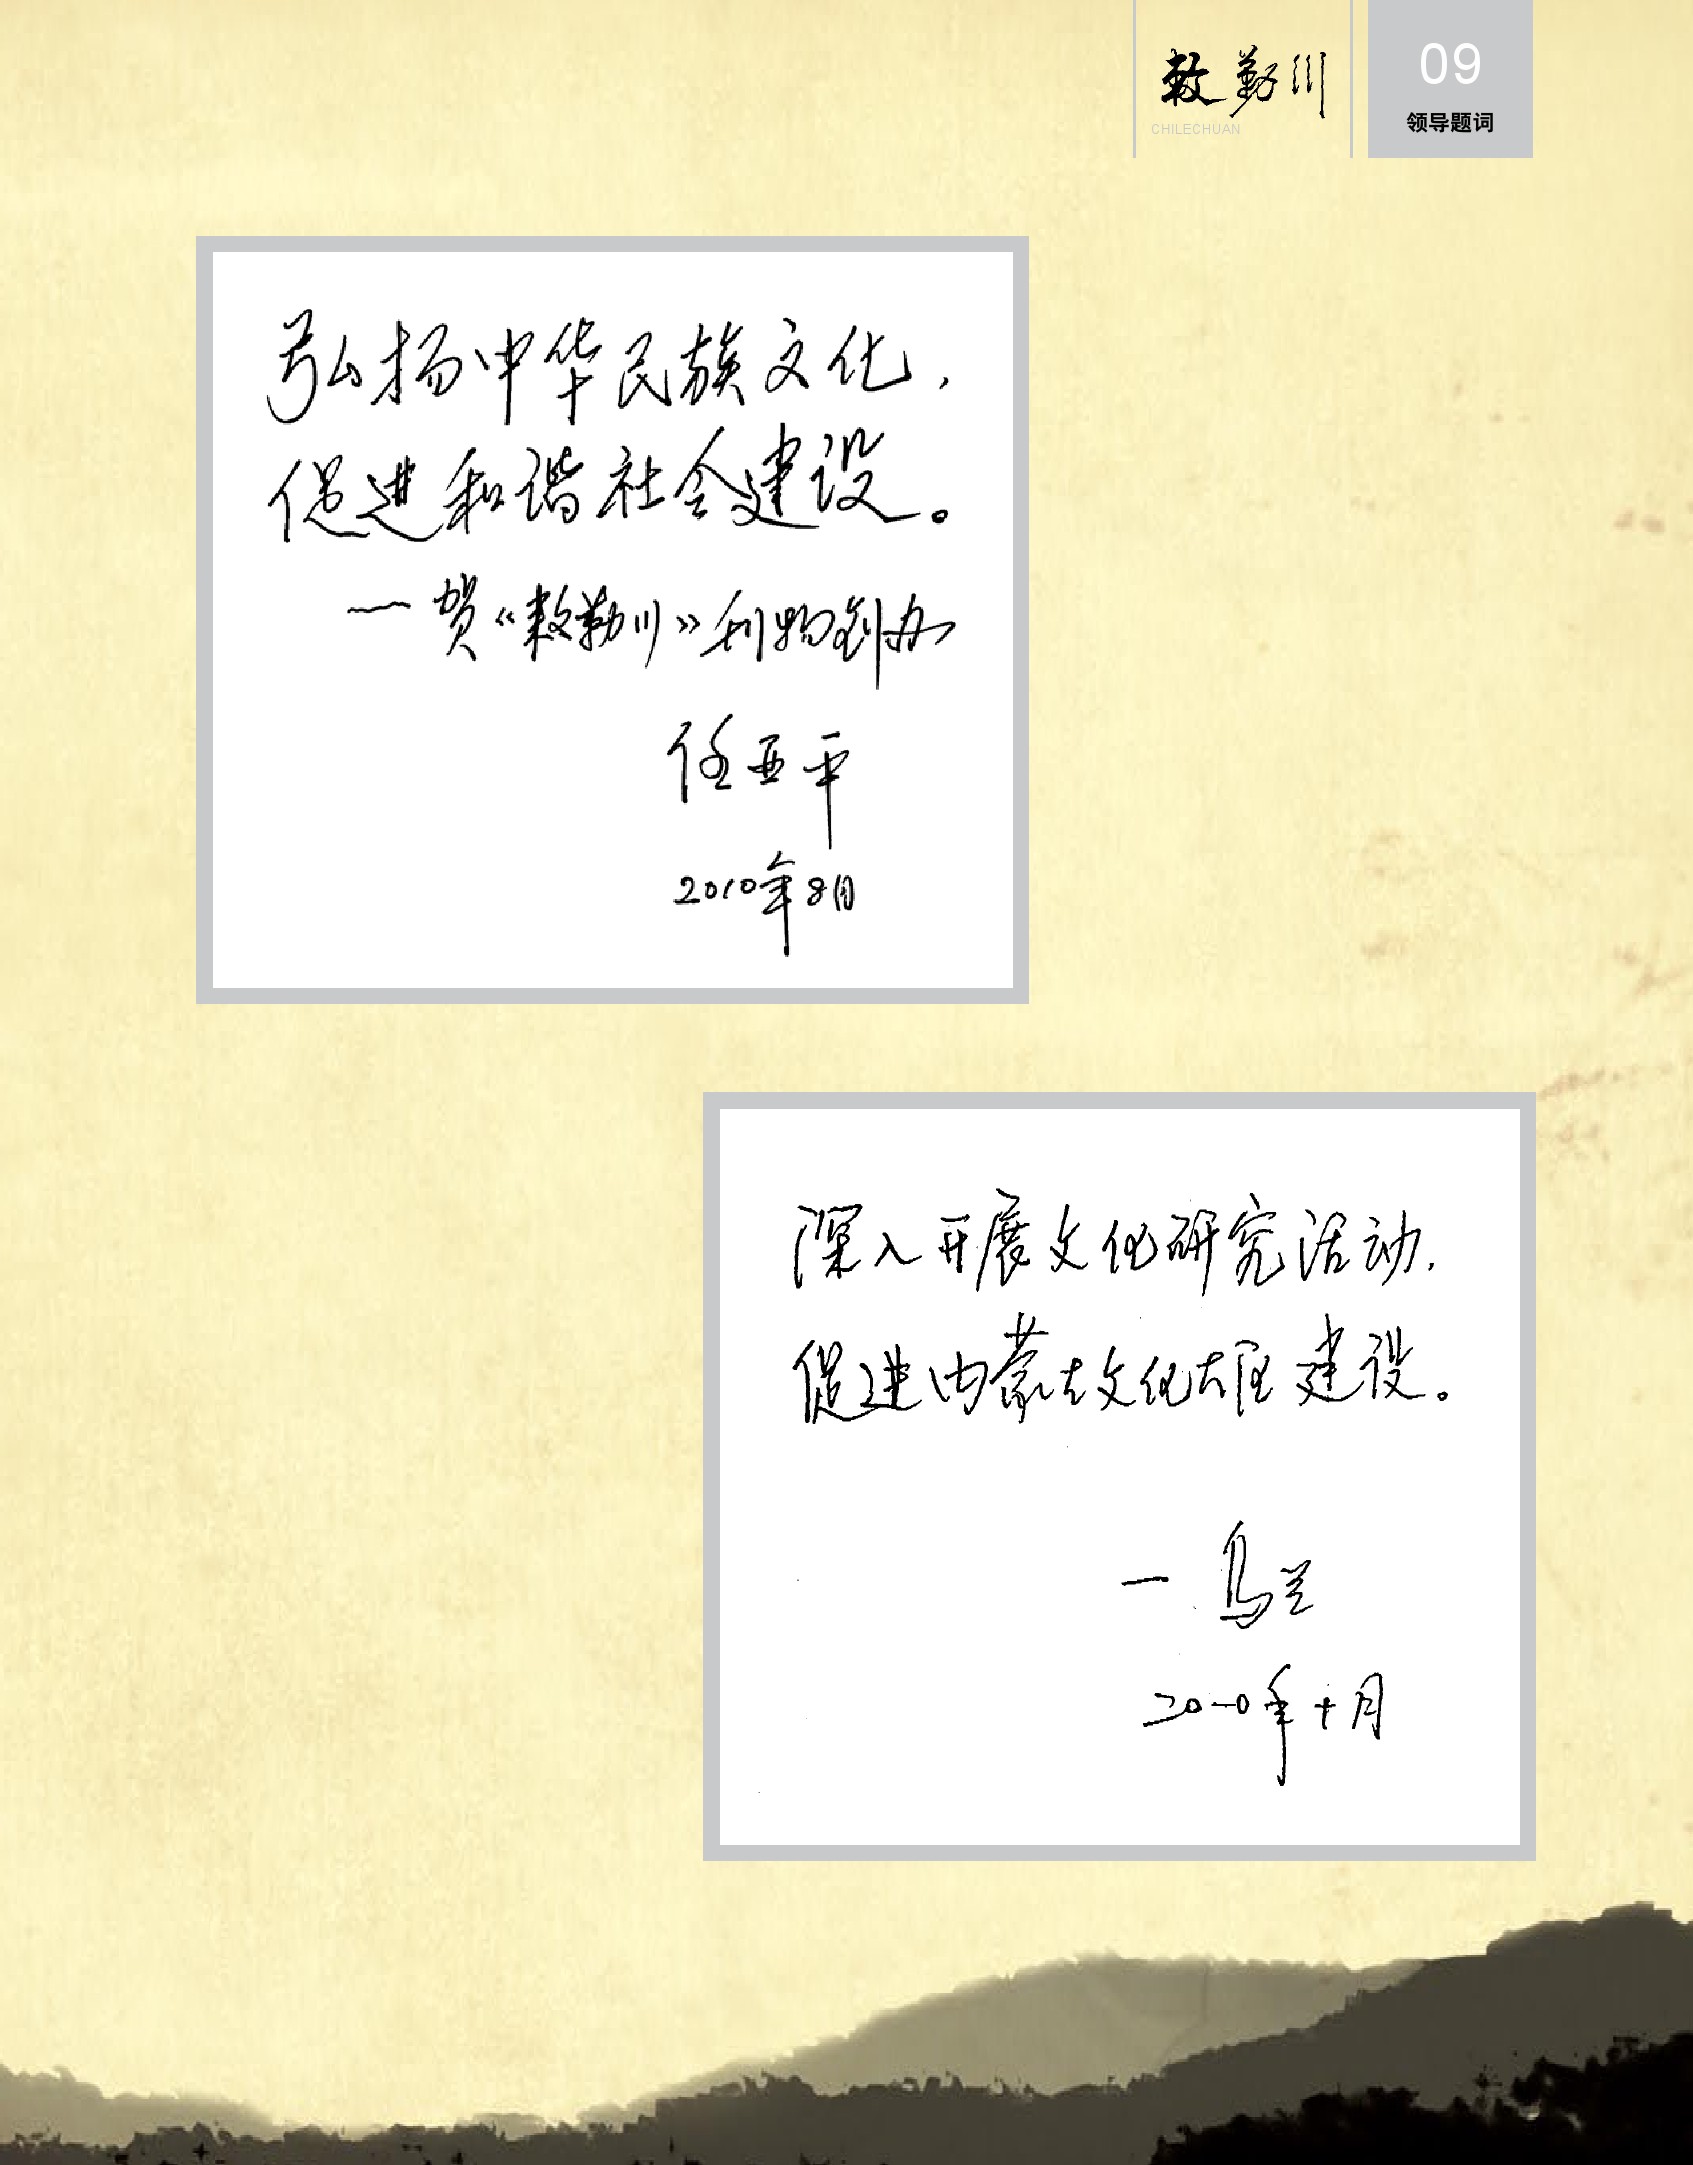 敕勒川
CHILECHUAN
09
领导题词
弘扬中华民族文化，
促进和谐社会建设。
——贺《敕勒川》刊物创办
任亚平
2010年8月
深入开展文化研究活动，
促进内蒙古文化大区建设。
— 乌兰
二0一0年十月